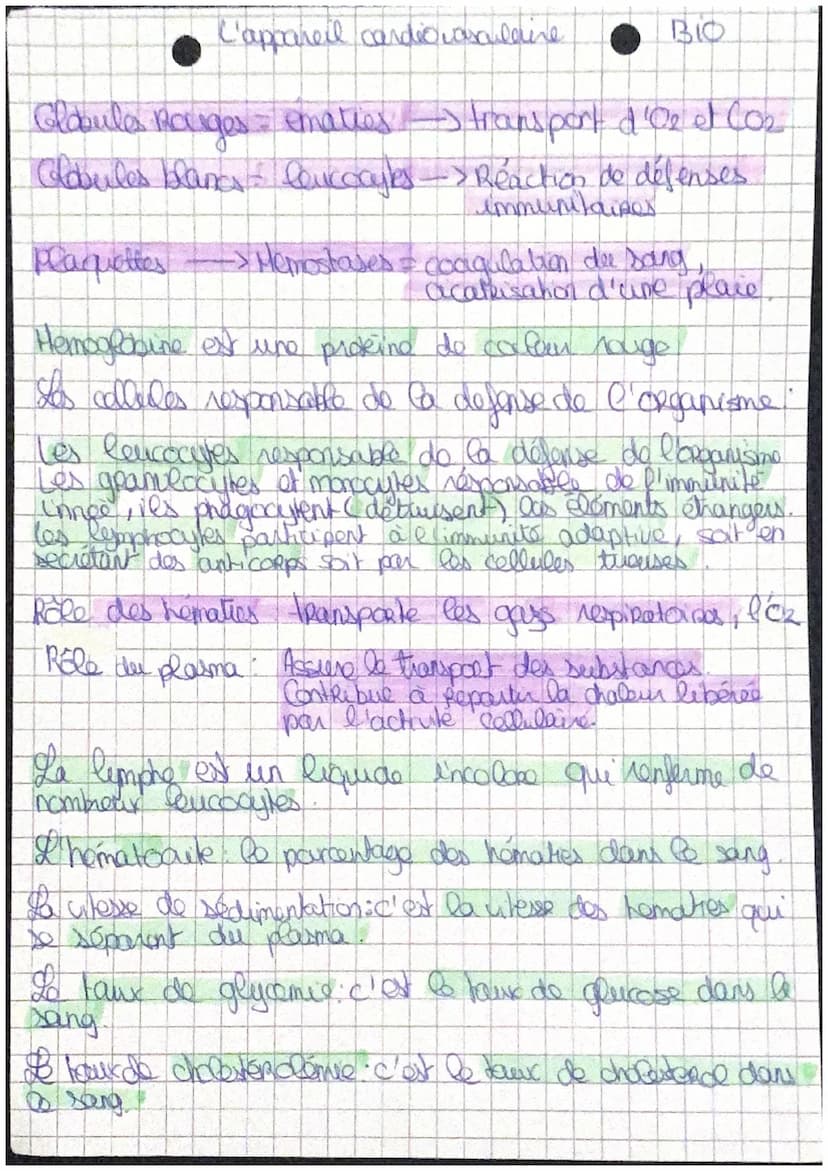 L'appareil cardiovasculaire BIO
Globules Rouges = ématies → transport d'O2 et CO2
Globules blancs = leucocytes → Réaction de défenses
immunitaires
Plaquettes → Hemostases = coagulation du sang,
cicatrisation d'une plaie.
Hemoglobine est une protéine de couleur rouge
Les cellules responsable de la defense de l'organisme :
Les leucocytes responsable de la défense de l'organisme
Les granulocytes et monocytes résponsable de l'immunité
innée, ils phagocytent (détruisent) les éléments étrangers.
Les lymphocytes participent à l'immunité adaptive, soit en
secrétant des anticorps soit par les cellules tueuses.
Rôle des hématies transporte les gazs respiratoires, l'O2
Rôle du plasma : Assure le transport des substances.
Contribue à répartir la chaleur libérée
par l'activité cellulaire.
La lymphe est un liquide incolore qui renferme de
nombreux leucocytes.
L'hématocrite : le pourcentage des hématies dans le sang.
La vitesse de sédimentation : c'est la vitesse des hematies qui
se séparent du plasma.
Le taux de glycémie : c'est le taux de glucose dans le
sang.
Le taux de cholestérolémie : c'est le taux de cholesterol dans
le sang.